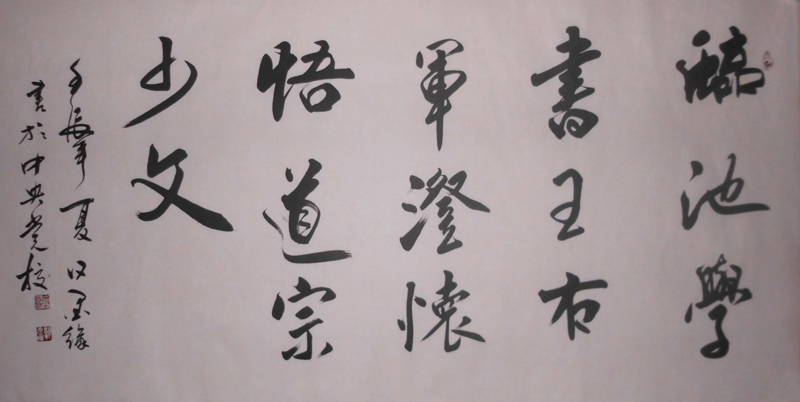 臨池學
書王右
軍澄懷
悟道宗
少文
壬辰年夏日墨緣
書於中央党校